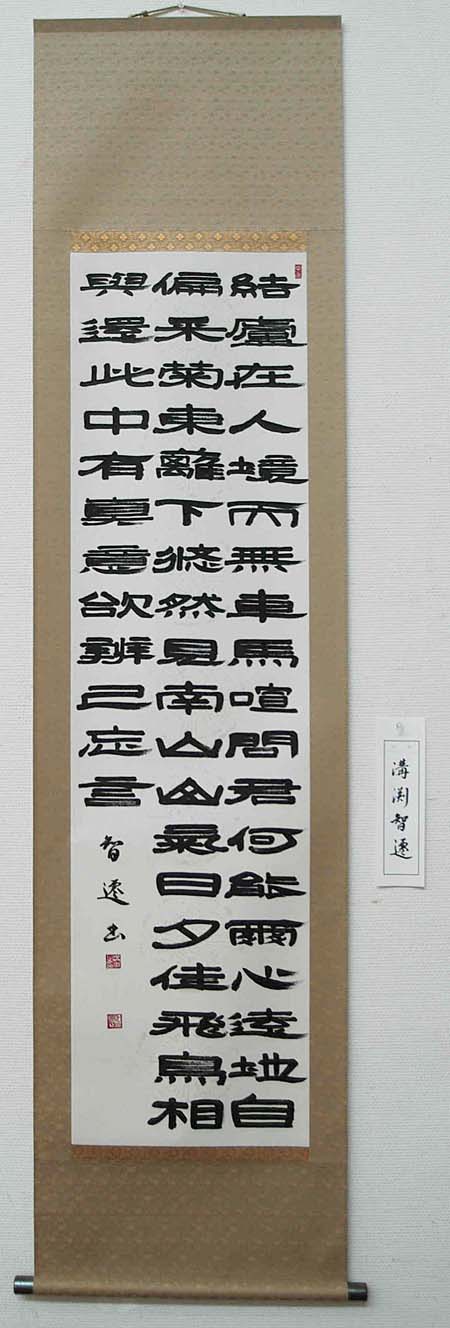 結廬在人境而無車馬喧問君何能爾心遠地自
偏采菊東離下悠然見南山山氣日夕佳飛鳥相
與還此中有真意欲辨已忘言
智遷書
溝渕智遷